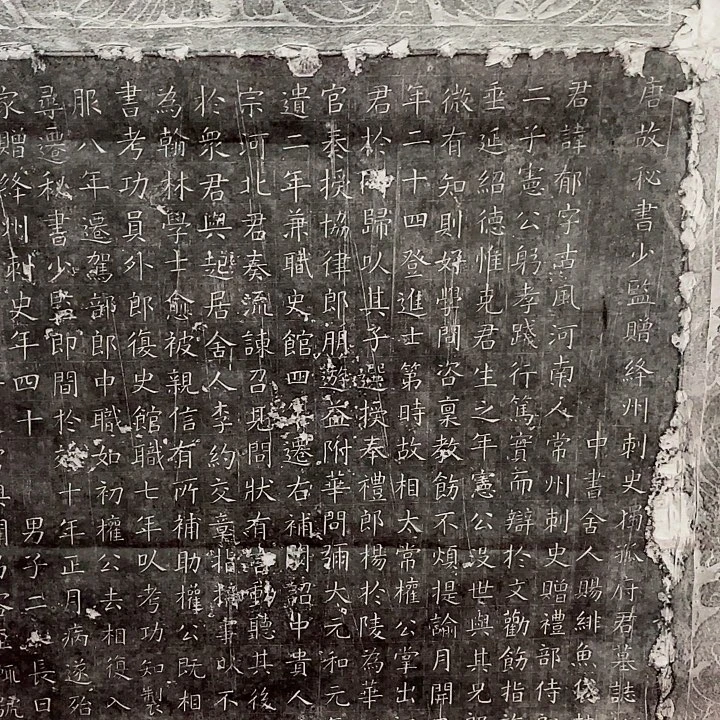 唐故秘書少監贈絳州刺史獨孤府君墓誌
中書舍人賜緋魚袋
君諱郁字古風河南人常州刺史贈禮部侍
二子憲公躬孝踐行篤實而辯於文勸飭指
垂延紹德惟克君生之年憲公沒世與其兄
微有知則好學問咨稟教飭不煩提諭月開
年二十四登進士第時故相太常權公掌出
君於歸以其子選授奉禮郎楊於陵為華
官奏授協律郎朋遊益附華問彌大元和元
遺二年兼職史館四年遷右補闕詔中貴人
宗河北君奏流諫召見問狀有言動聽其後
於衆君與起居舍人李約交章指摘事以不
為翰林學士愈被親信有所補助權公既相
書考功員外郎復史館職七年以考功知製
服八年遷駕部郎中職如初權公去相復入
尋遷秘書少監即間於郊十年正月病遂殆
家贈絳州刺史年四十 男子二 長曰